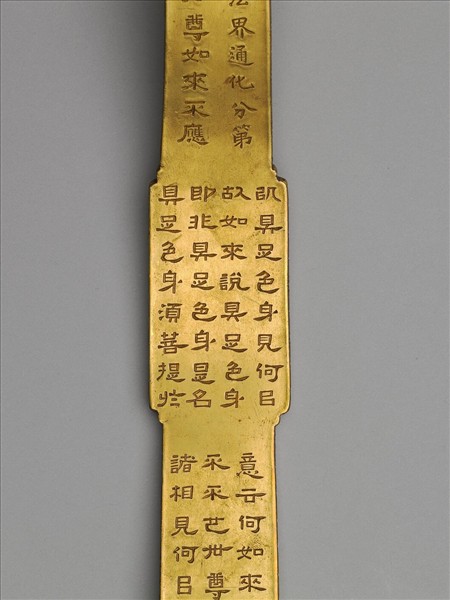 法界通化分第
尊如來不應
以具足色身見何以
故如來說具足色身
即非具足色身是名
具足色身須菩提於
意云何如來
不不也世尊
諸相見何以